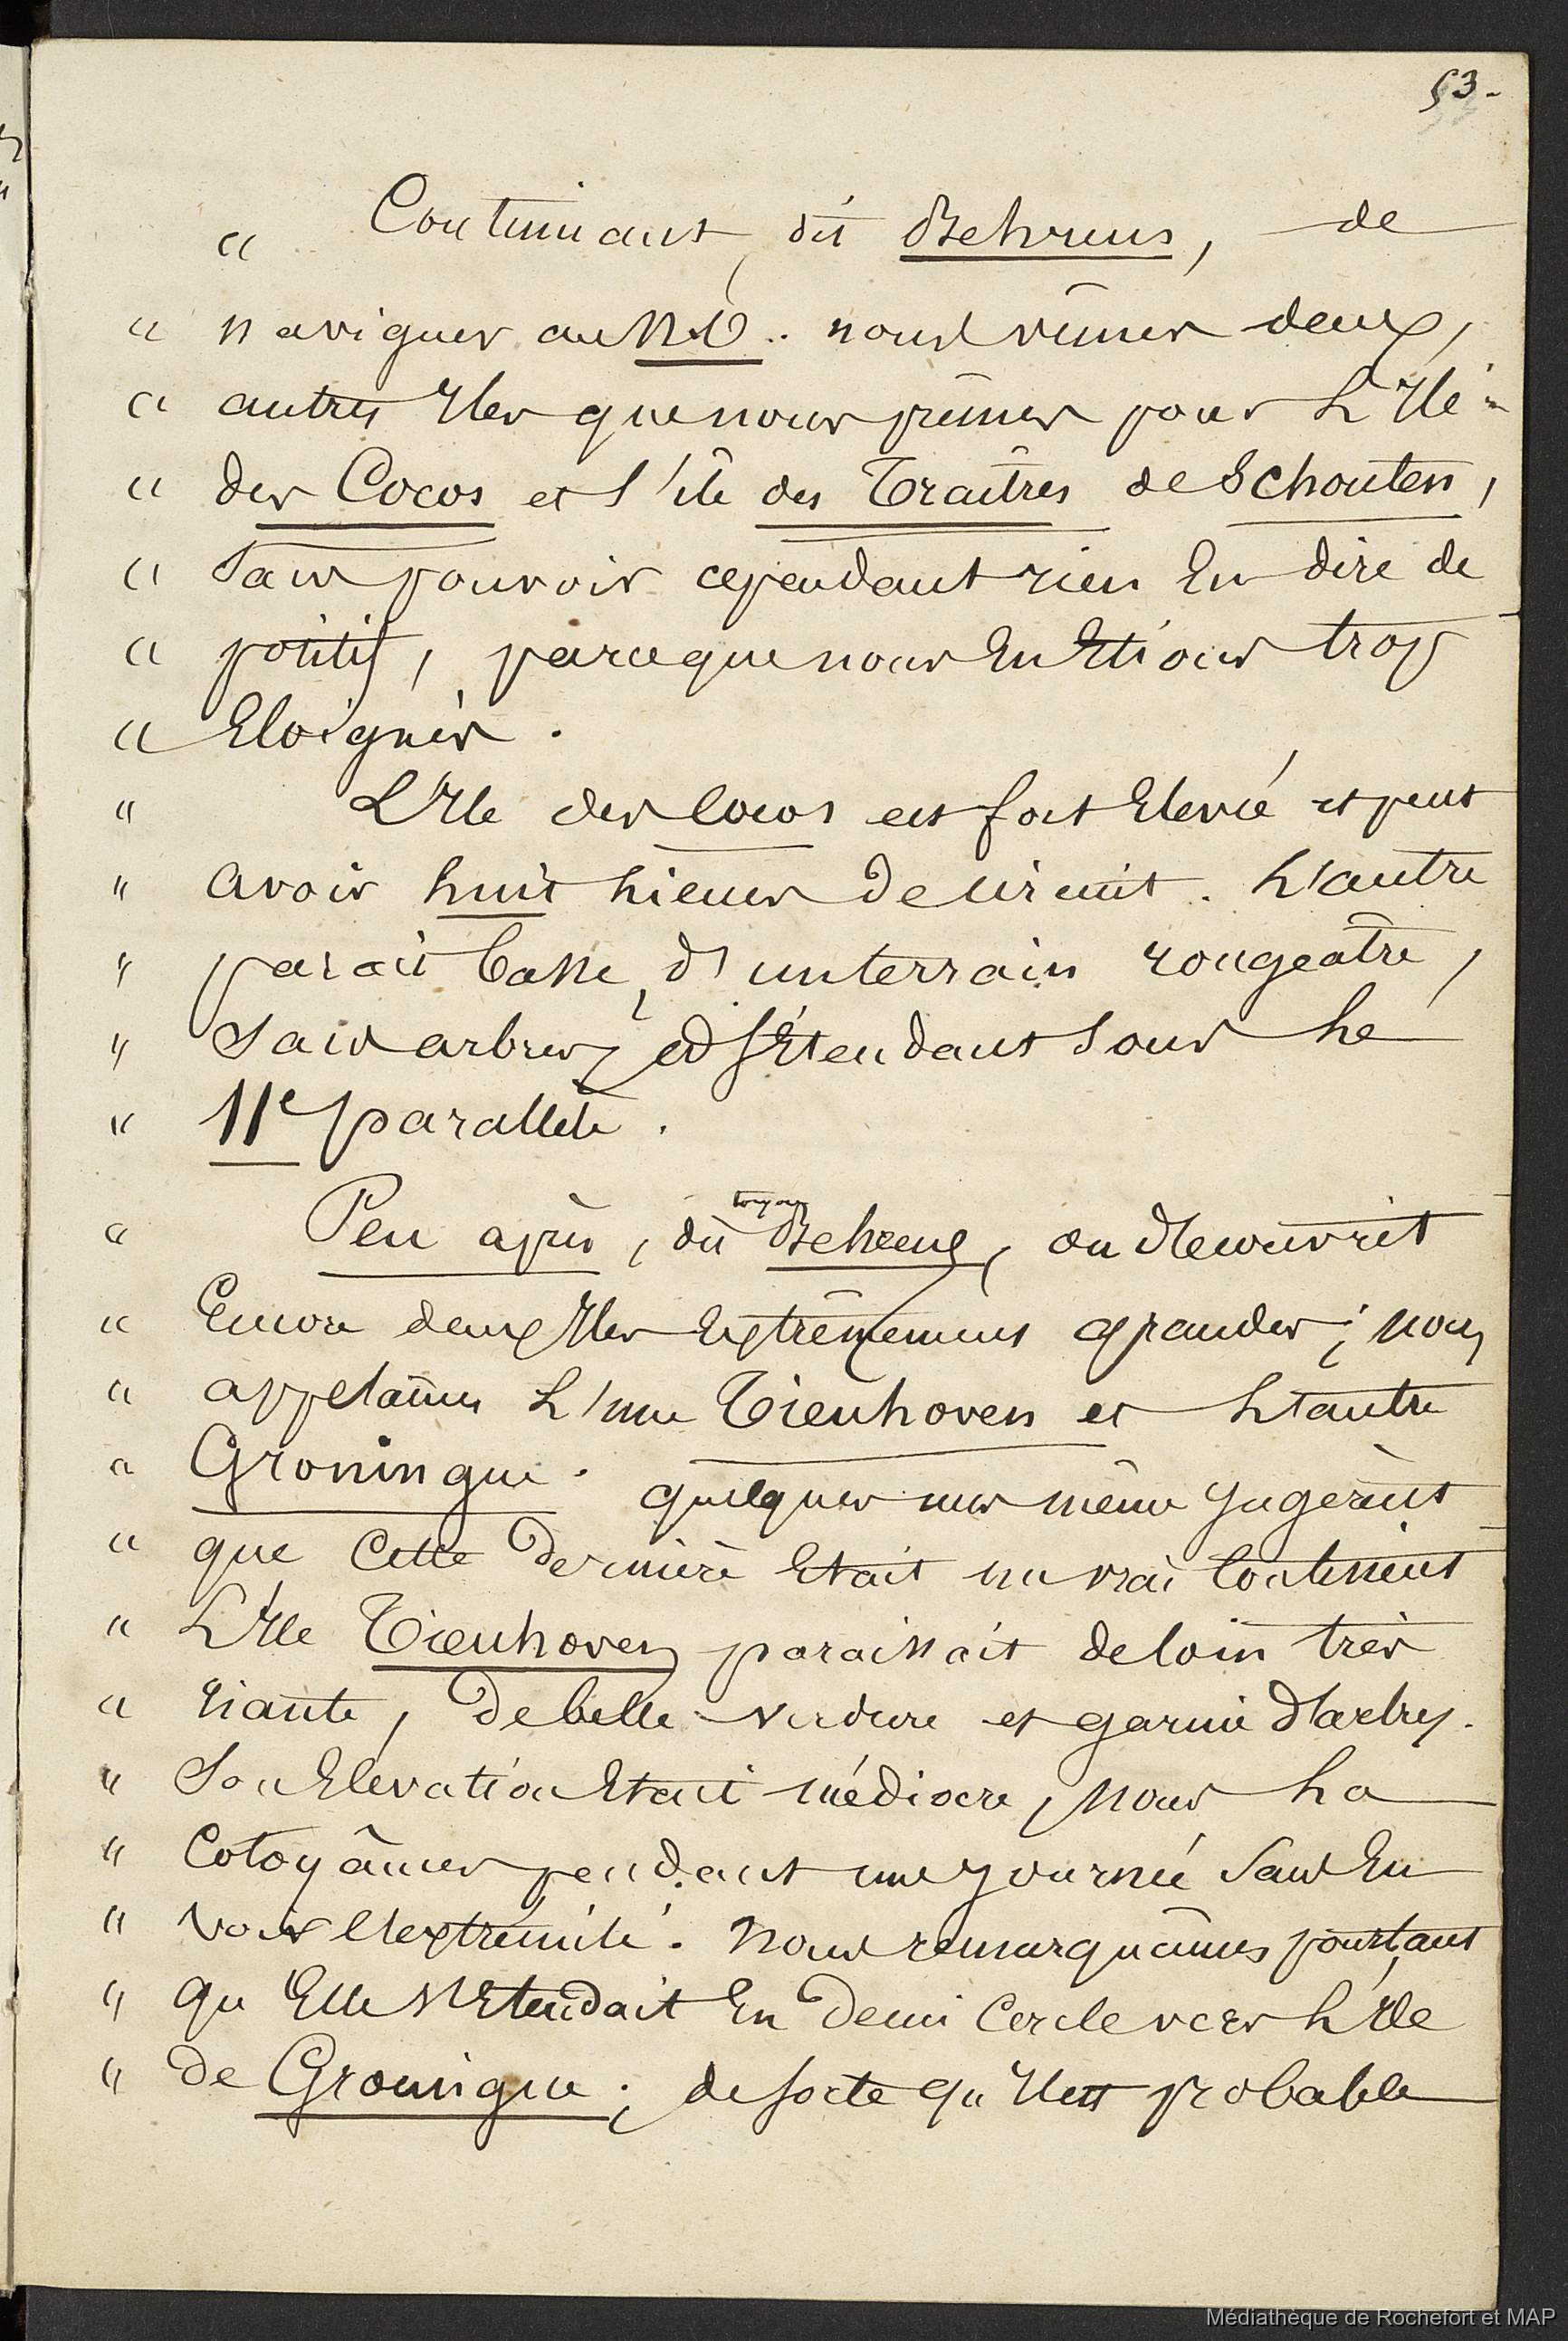 53.
" Continuant, dit Behrens, de
" naviguer au N.O. nous vîmes deux,
" autres Iles que nous prîmes pour L'Ile
" des Cocos et l'ile des Traîtres de Schouten,
" Sans pouvoir cependant rien En dire de
" positif, parceque nous En Etions trop
" Eloignés.
" L'Ile des Cocos est fort Elevée et peut
" avoir huit lieues de circuit. L'autre
" parait basse, d'un terrain rougeâtre,
" Sans arbres, et s'Etendant sous le
" 11e parallèle.
toujours
" Peu après, dit Behrens, on decouvrit
" Encore deux Iles Extrêmement grandes; nous
" appelâmes L'une Tienhoven et L'autre
" Groningue. quelques uns même jugèrent
" que Cette dernière Etait un vrai Continent
" L'Ile Tienhoven paraissait de loin très
" riante, de belle verdure et garnie d'arbres.
" Son Elévation Etait médiocre, nous La
" Cotoyâmes pendant une journée Sans En
" voir l'extrémité. Nous remarquâmes pourtant
" qu'Elle s'Etendait En demi Cercle vers L'Ile
" de Groningue; de sorte qu'Il est probable
Médiathèque de Rochefort et MAP